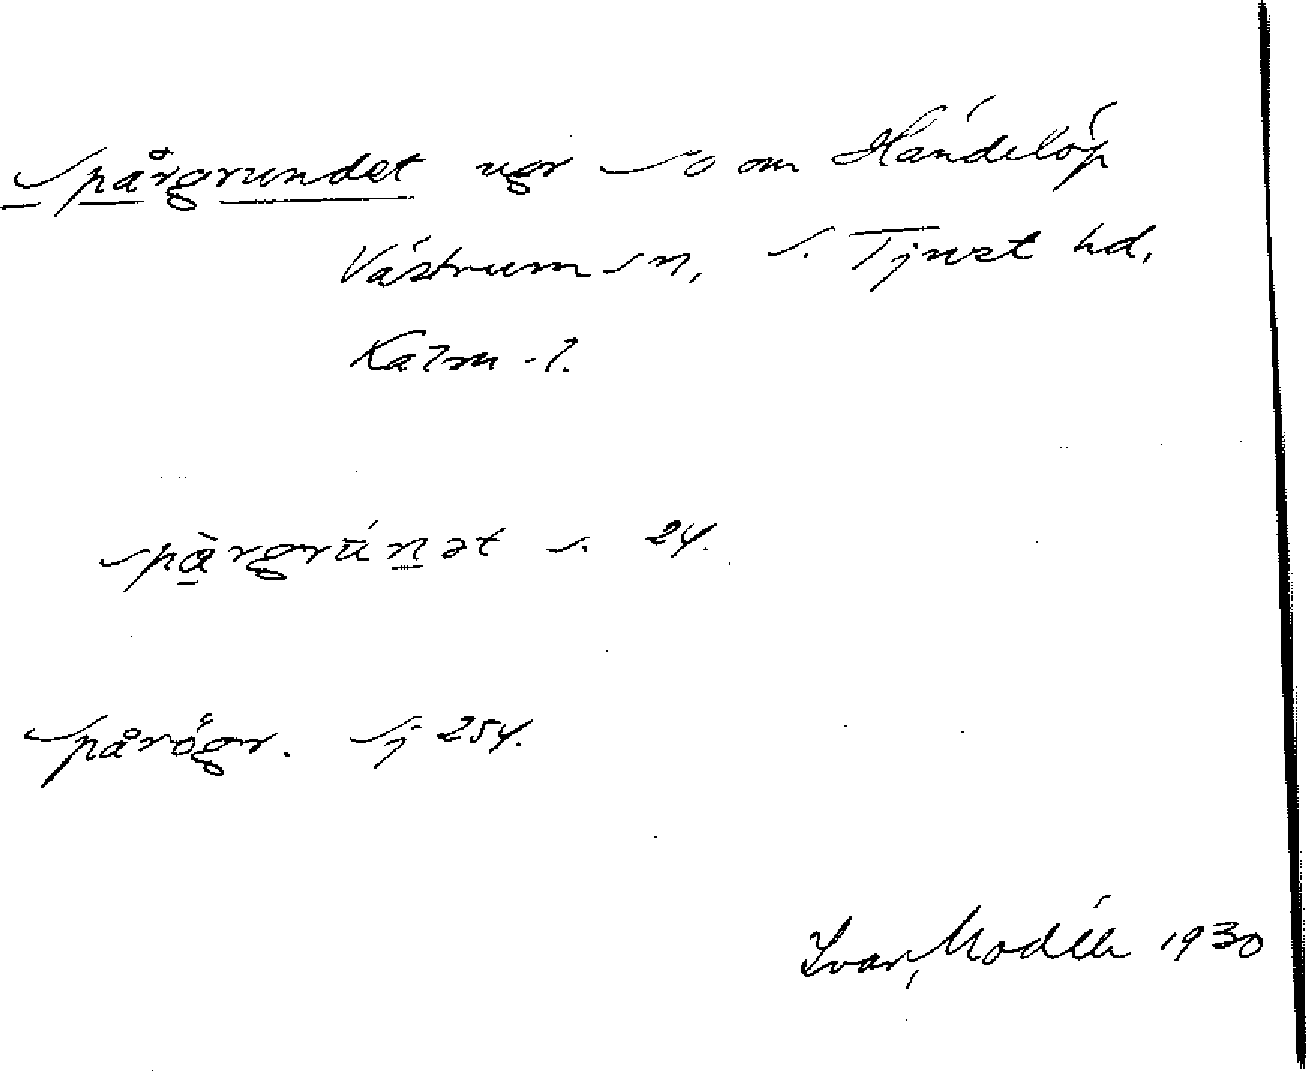 Spårgrundet ugr SO om Händelöp
Västrum sn, S. Tjust hd,
Kalm. l.
spårgrúnət s. 24.
Spårögr. Sj 254.
Ivar Modéer 1930